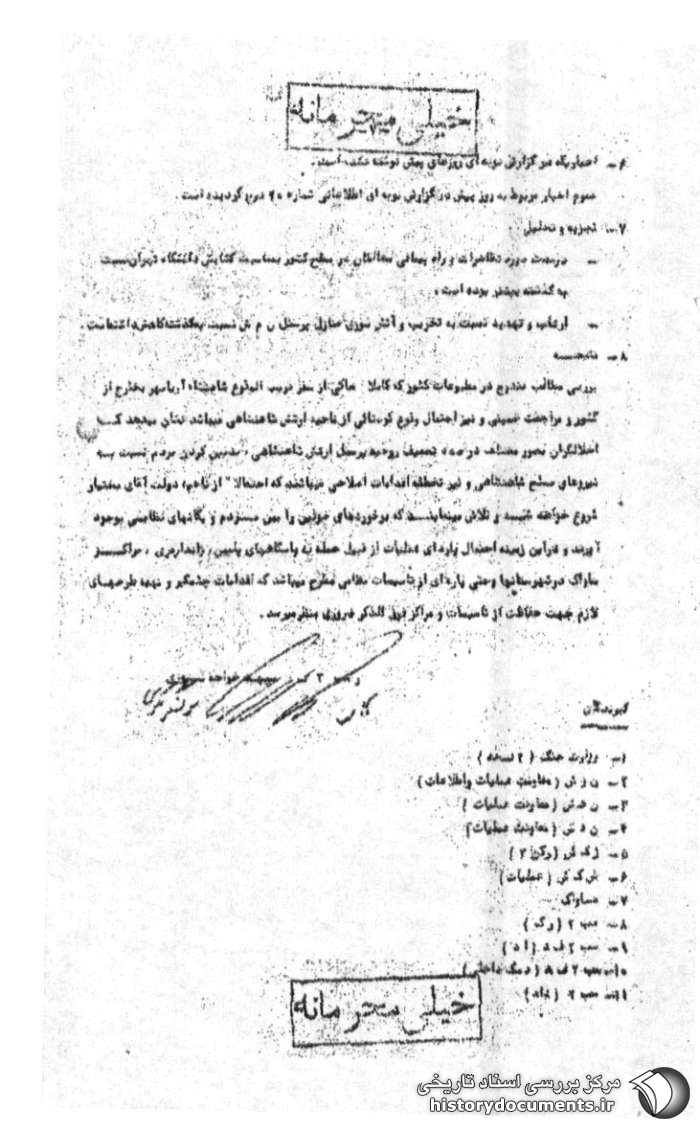 خیلی محرمانه
۶- اخباریکه در گزارش نوبه ای روزهای پیش نوشته نشده است.
عموم اخبار مربوط به روز پیش در گزارش نوبه ای اطلاعاتی شماره ۲۰ درج گردیده است.
۷- تجزیه و تحلیل
- درصد مورد تظاهرات و راه پیمائی مخالفان در سطح کشور بمناسبت گشایش دانشگاه تهران نسبت
به گذشته بیشتر بوده است.
- ارعاب و تهدید نسبت به تخریب و آتش سوزی منازل پرسنل ن م ش نسبت بگذشته کاهش داشته است.
۸- نتیجه
بررسی مطالب مندرج در مطبوعات کشور که کاملا حاکی از سفر قریب الوقوع شاهنشاه آریامهر بخارج از
کشور و مراجعت خمینی و نیز احتمال وقوع کودتائی از ناحیه ارتش شاهنشاهی میباشد نشان میدهد که
اخلالگران بصور مختلف در صدد تضعیف روحیه پرسنل ارتش شاهنشاهی، بدبین کردن مردم نسبت به
نیروهای مسلح شاهنشاهی و نیز تخطئه اقدامات اصلاحی میباشند که احتمالا" از ناحیه دولت آقای بختیار
شروع خواهد شد و تلاش مینمایند که برخوردهای خونین را بین مردم و یگانهای نظامی بوجود
آورند و در این زمینه احتمال پاره ای عملیات از قبیل حمله به پاسگاههای پلیس، ژاندارمری، مراکز
ساواک در شهرستانها و حتی پاره ای از تاسیسات نظامی مطرح میباشد که اقدامات چشمگیر و تهیه طرحهای
لازم جهت حفاظت از تاسیسات و مراکز فوق الذکر ضروری بنظر میرسد.
گیرندگان
۱- وزارت جنگ (۲ نسخه)
۲- ن ز ش (معاونت عملیات واطلاعات)
۳- ن ه ش (معاونت عملیات)
۴- ن د ش (معاونت عملیات)
۵- ژ ک ش (رکن ۲)
۶- ش ک ش (عملیات)
۷- ساواک
۸- سب ۲ (رک)
۹- سب ۲
۱۰- سب ۲
۱۱- سب ۲
خیلی محرمانه
مرکز بررسی اسناد تاریخی
historydocuments.ir